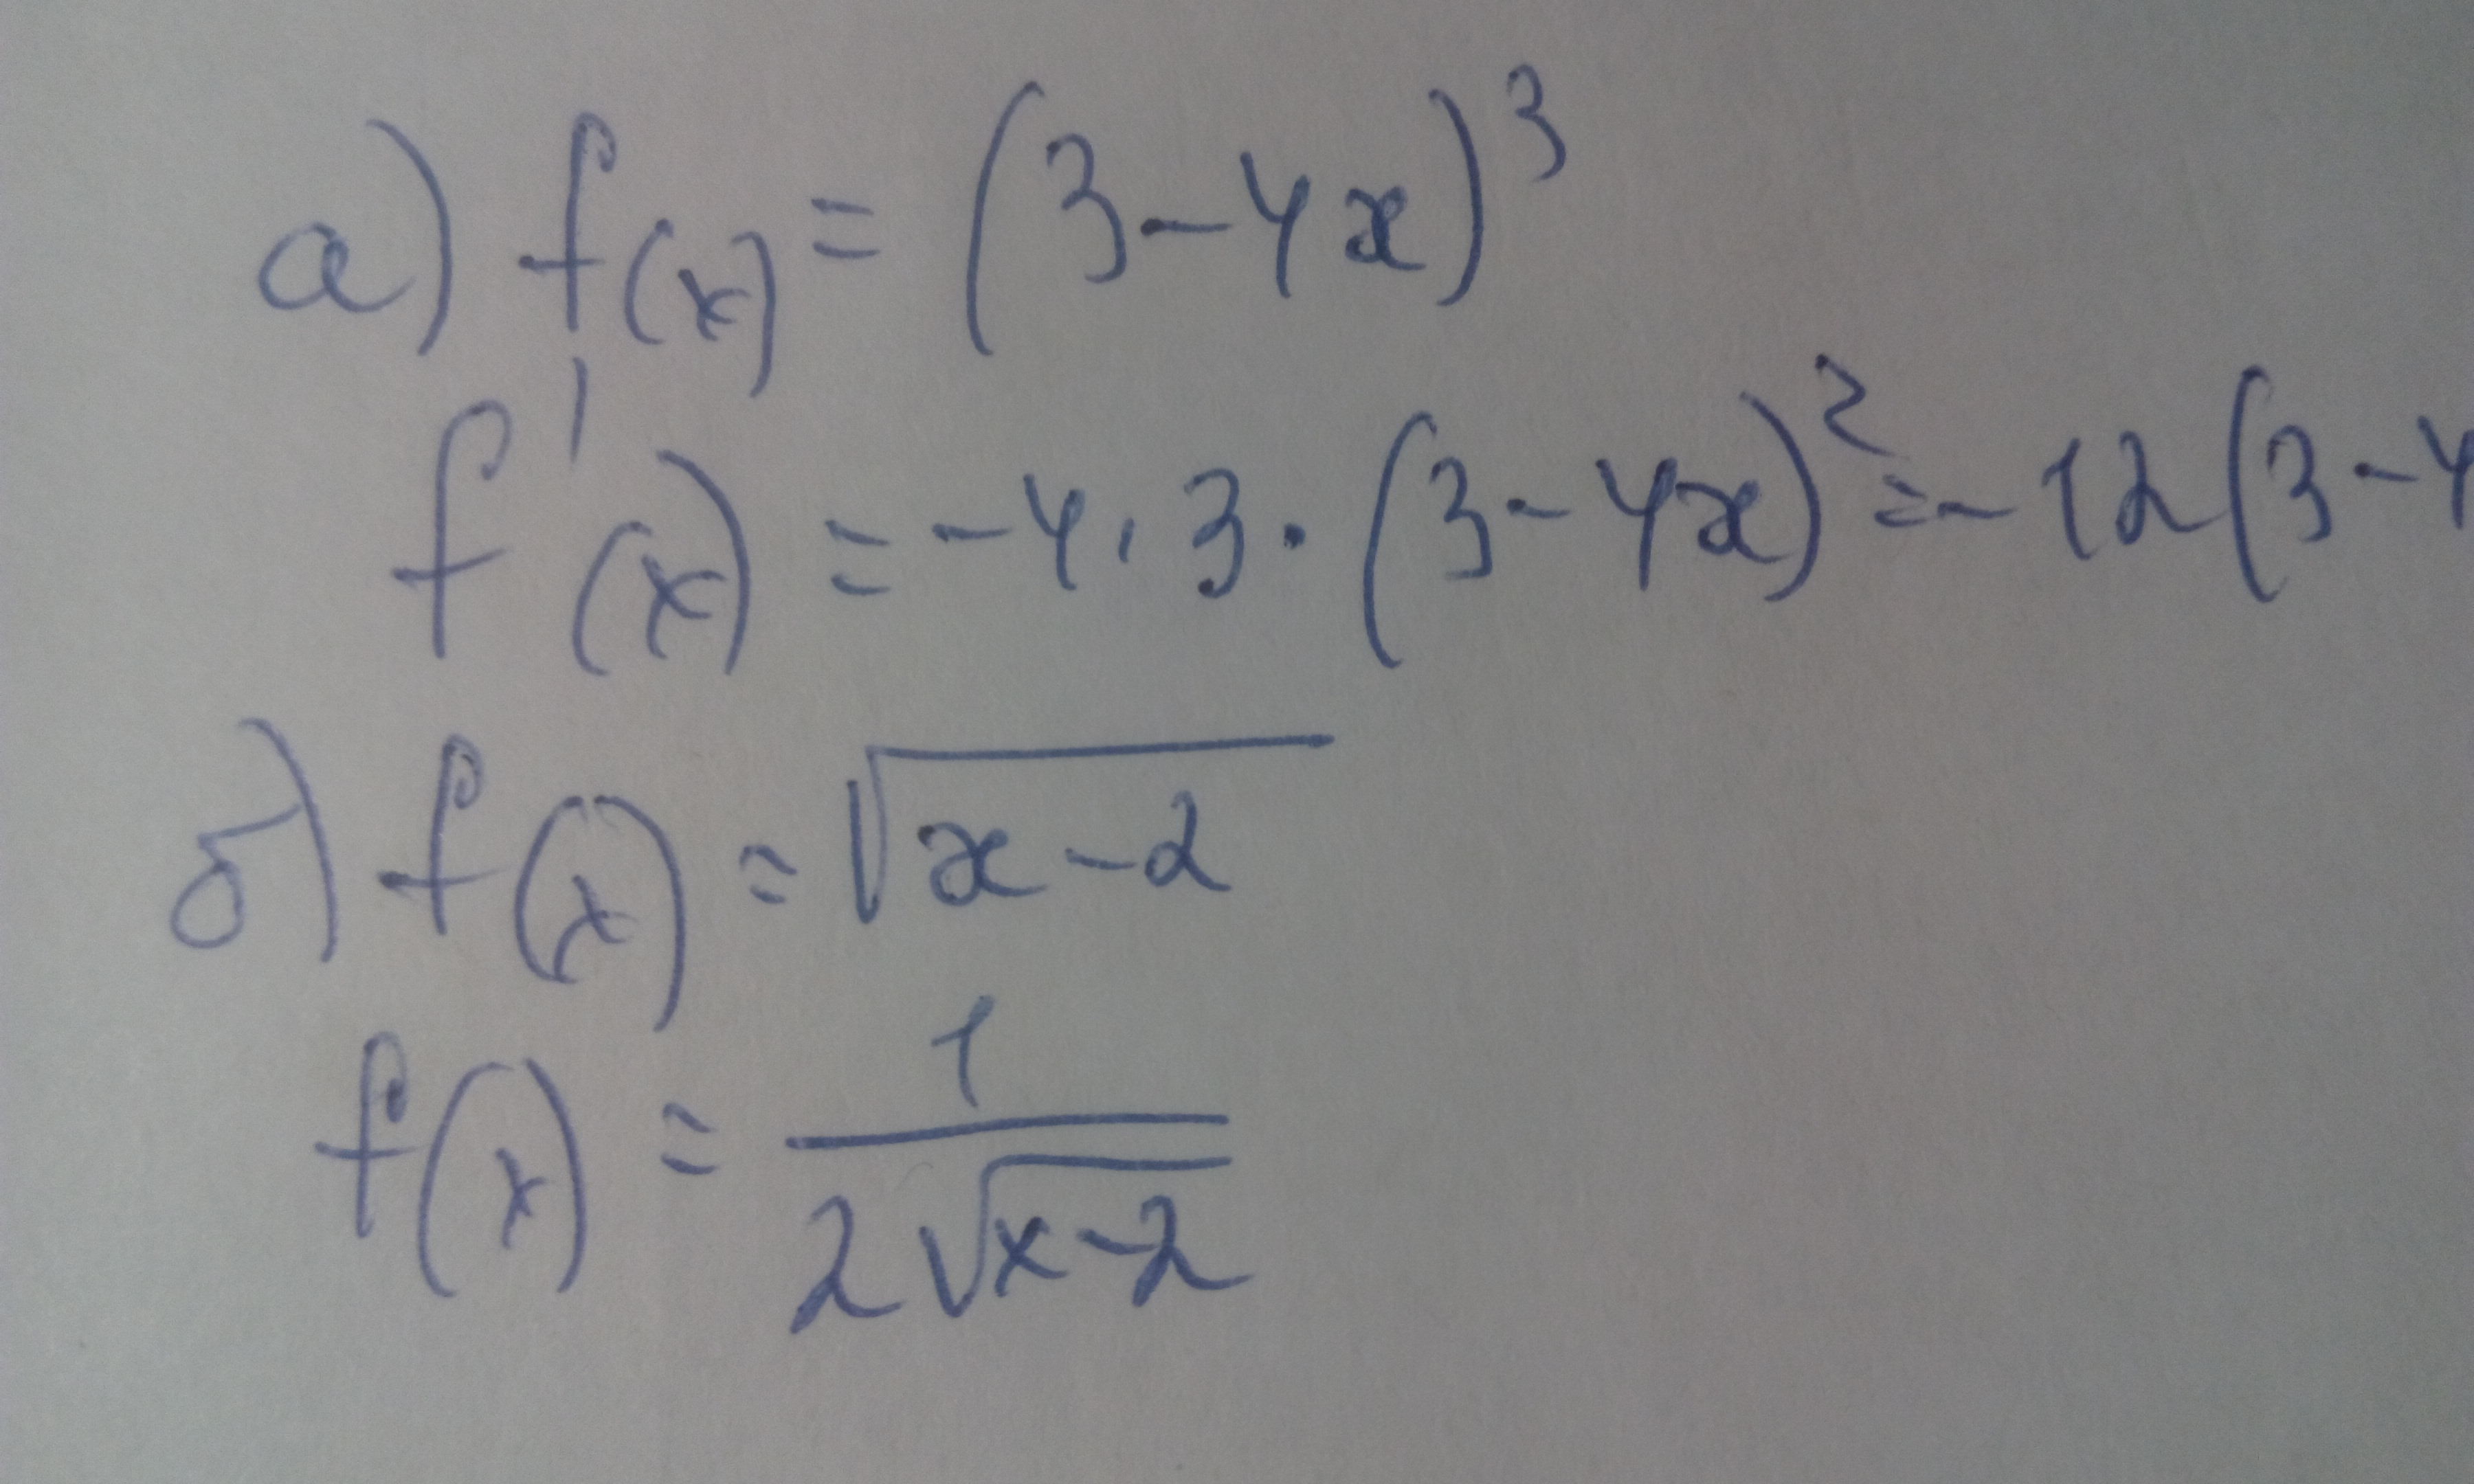 а) f(x) = (3-4x)³
f'(x) = -4·3·(3-4x)² = -12(3-4
б) f(x) = √(x-2)
f(x) = 1/(2√(x-2))